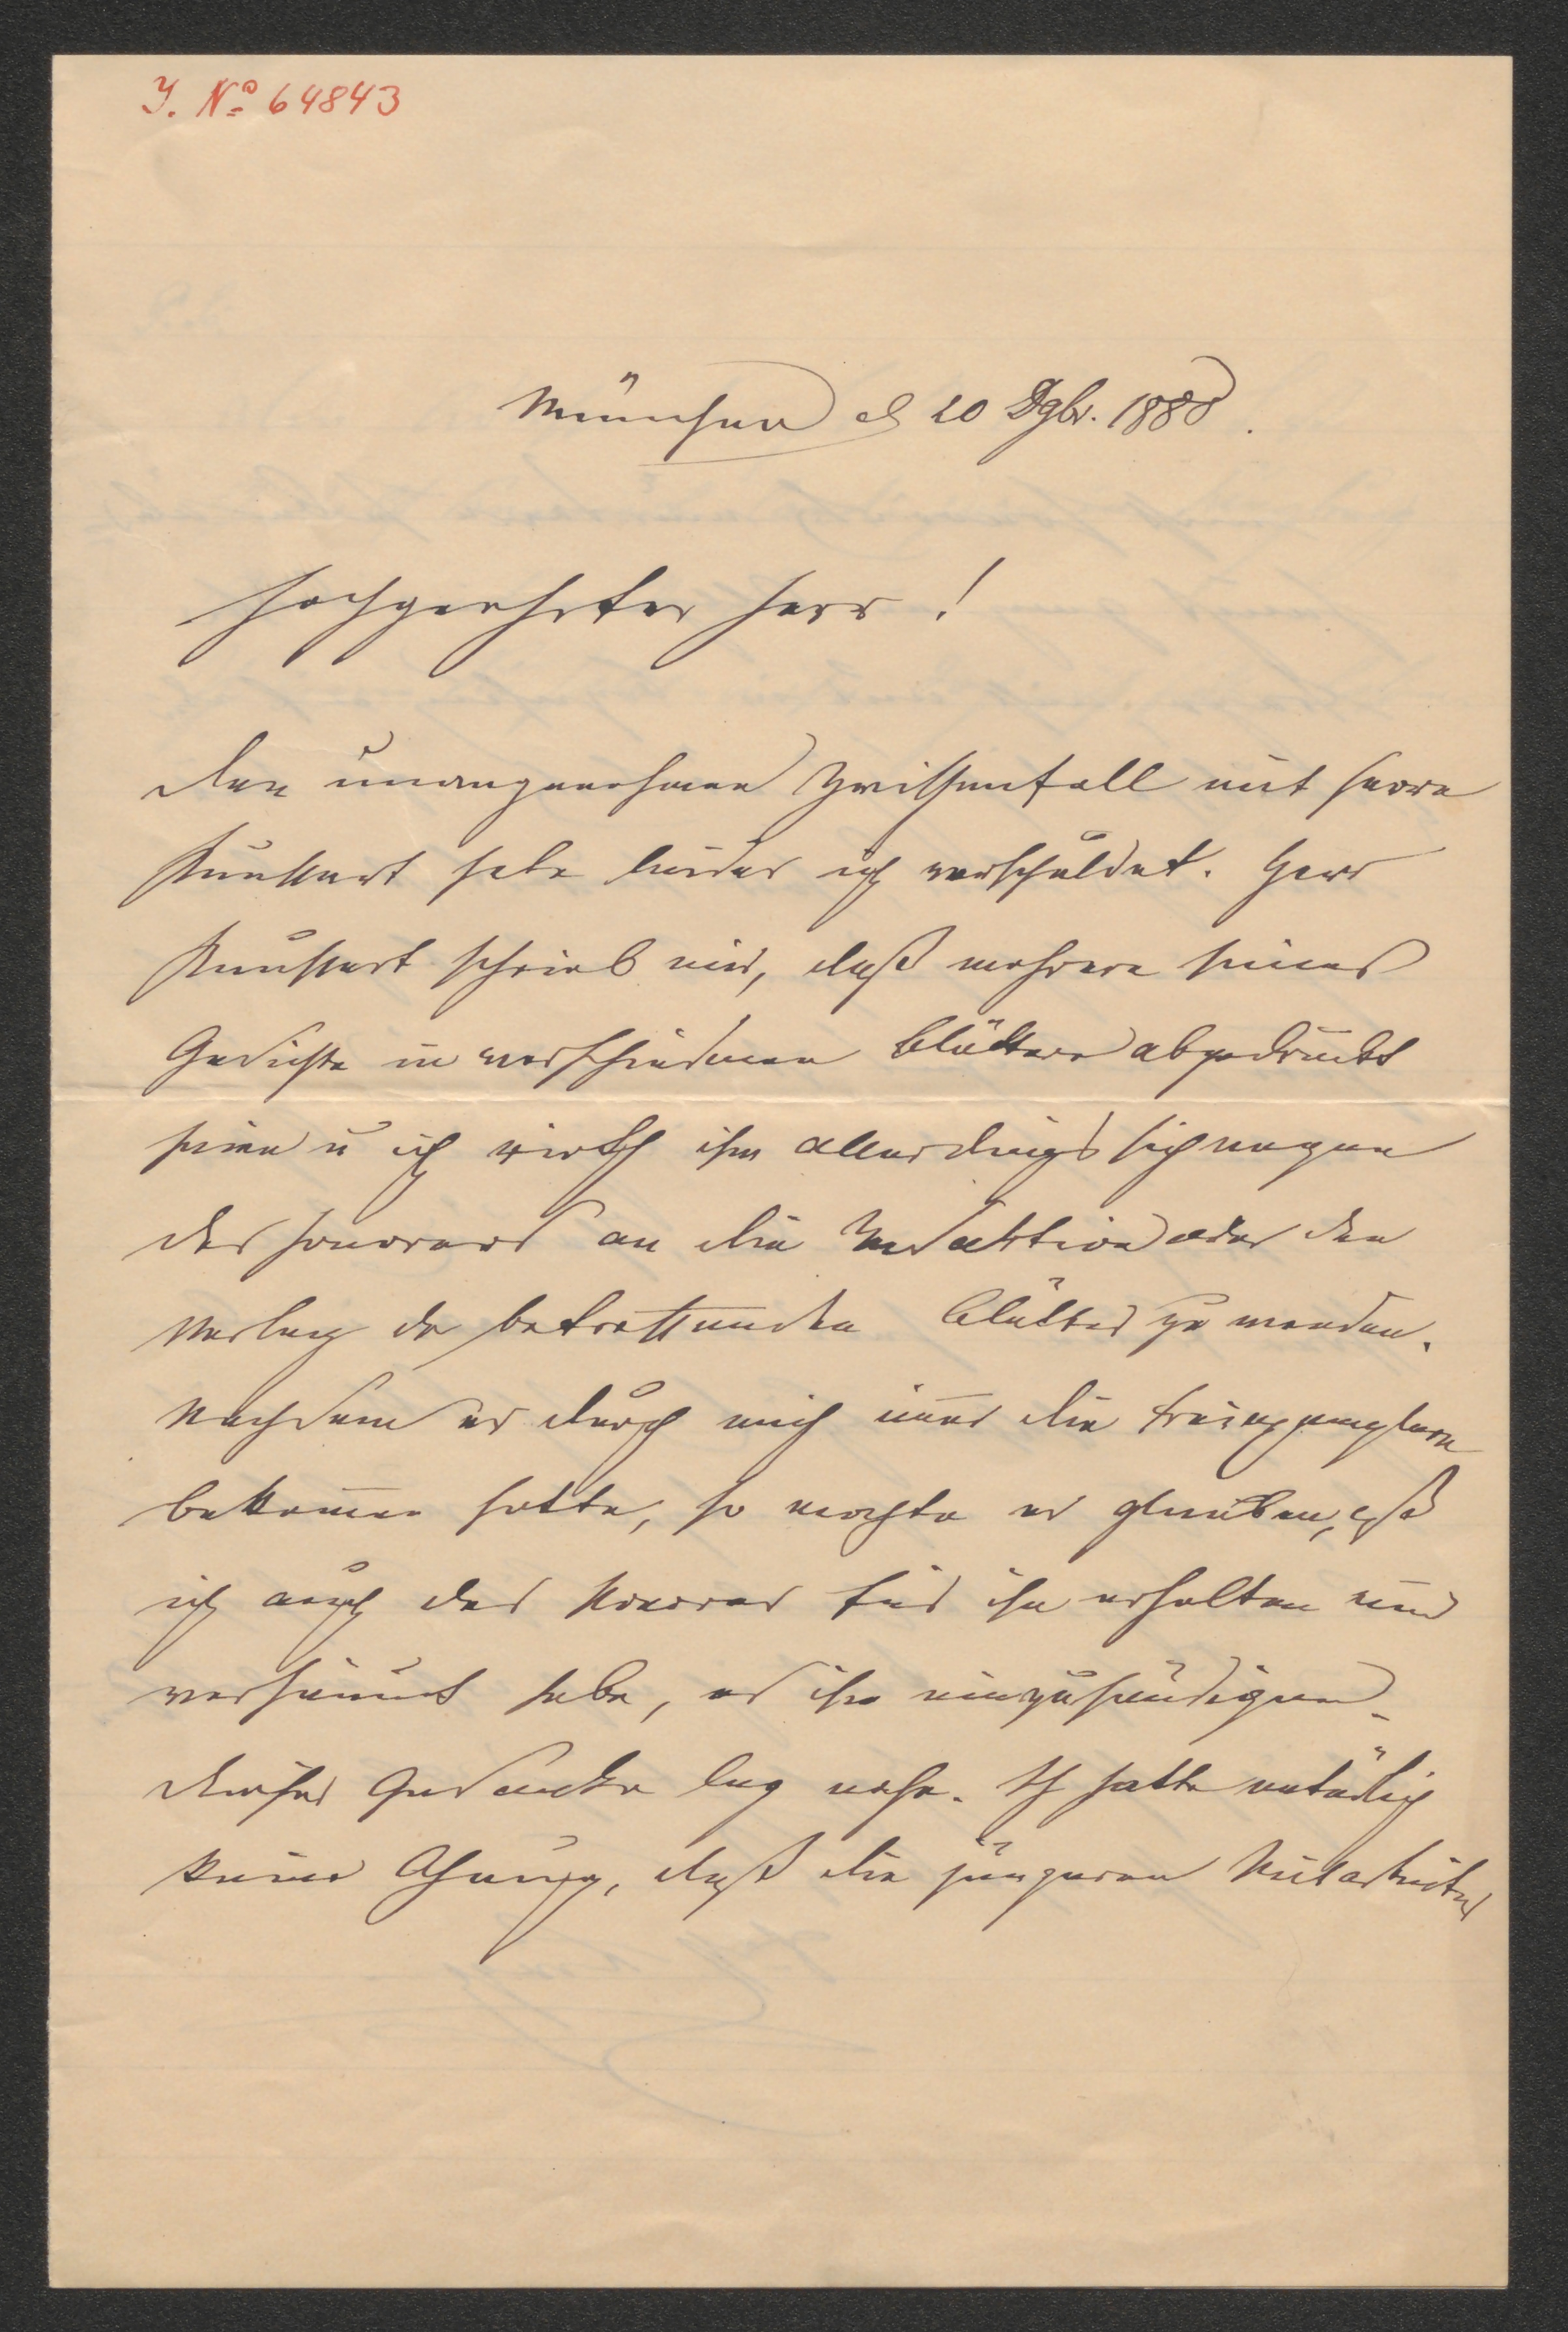 J. No 64843
München d 20 Dzbr. 1880.
Hochgeehrter Herr!
Den unangenehmen Zwischenfall mit Herrn
habe leider ich verschuldet. Herr
schrieb mir, daß mehrere seiner
Gedichte in verschiedenen Blättern abgedruckt
seien u ich rieth ihm allerdings sich wegen
des Honorars an die Redaktion oder den
Verlag der betreffenden Blätter zu wenden.
Nachdem er durch mich im̅er die
beko̅men hatte, so mochte er glauben, daß
ich auch das Honorar für ihn erhalten und
versäumt habe, es ihm einzuhändigen.
Dieser Gedanke lag nahe. Ich hatte natürlich
keine Ahnung, daß die jüngeren Mitarbeiter